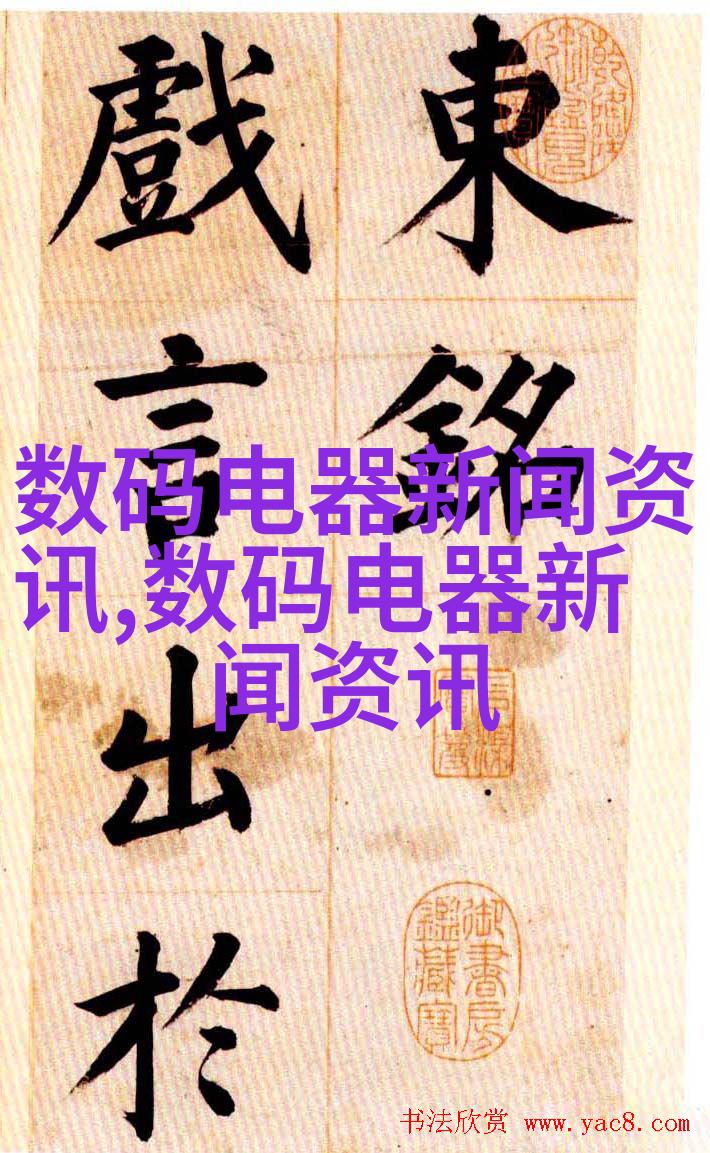 東銘
戲言出於
数码电器新闻资
讯,数码电器新
闻资讯
御書房
鑑藏寶
书法欣赏 www.yac8.com